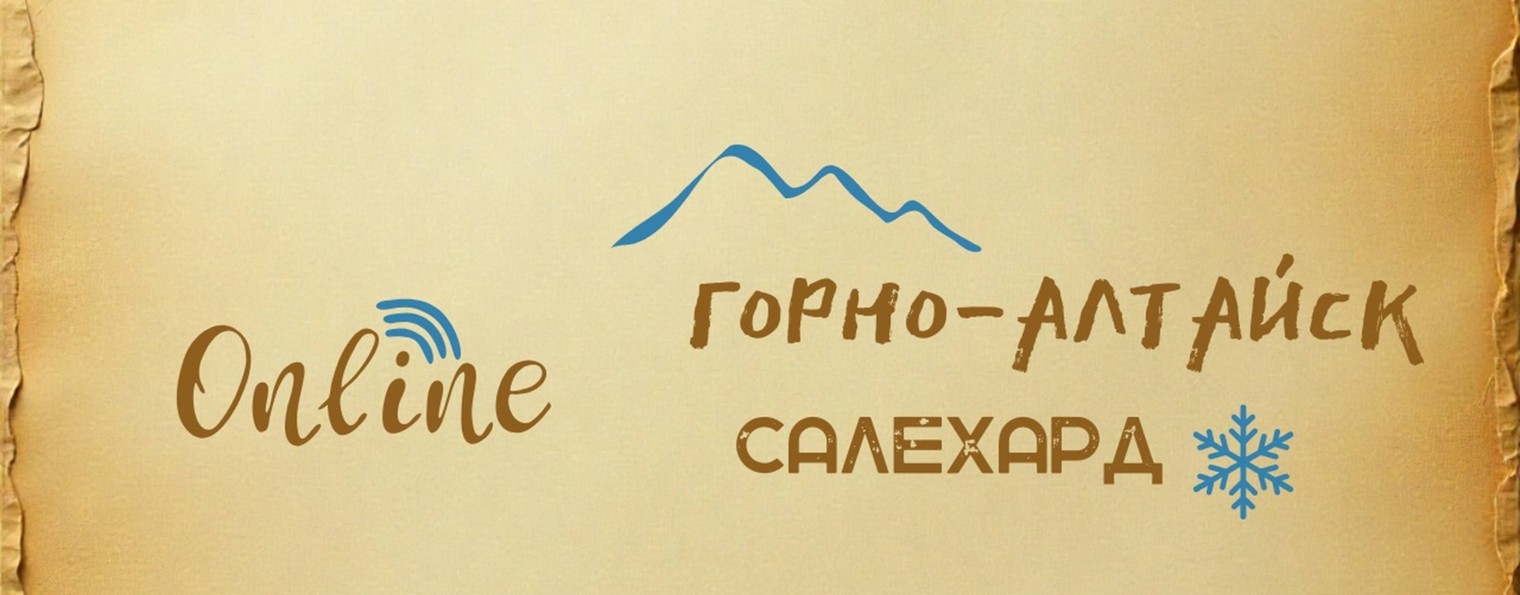 Online
ГОРНО-АЛТАЙСК
САЛЕХАРД